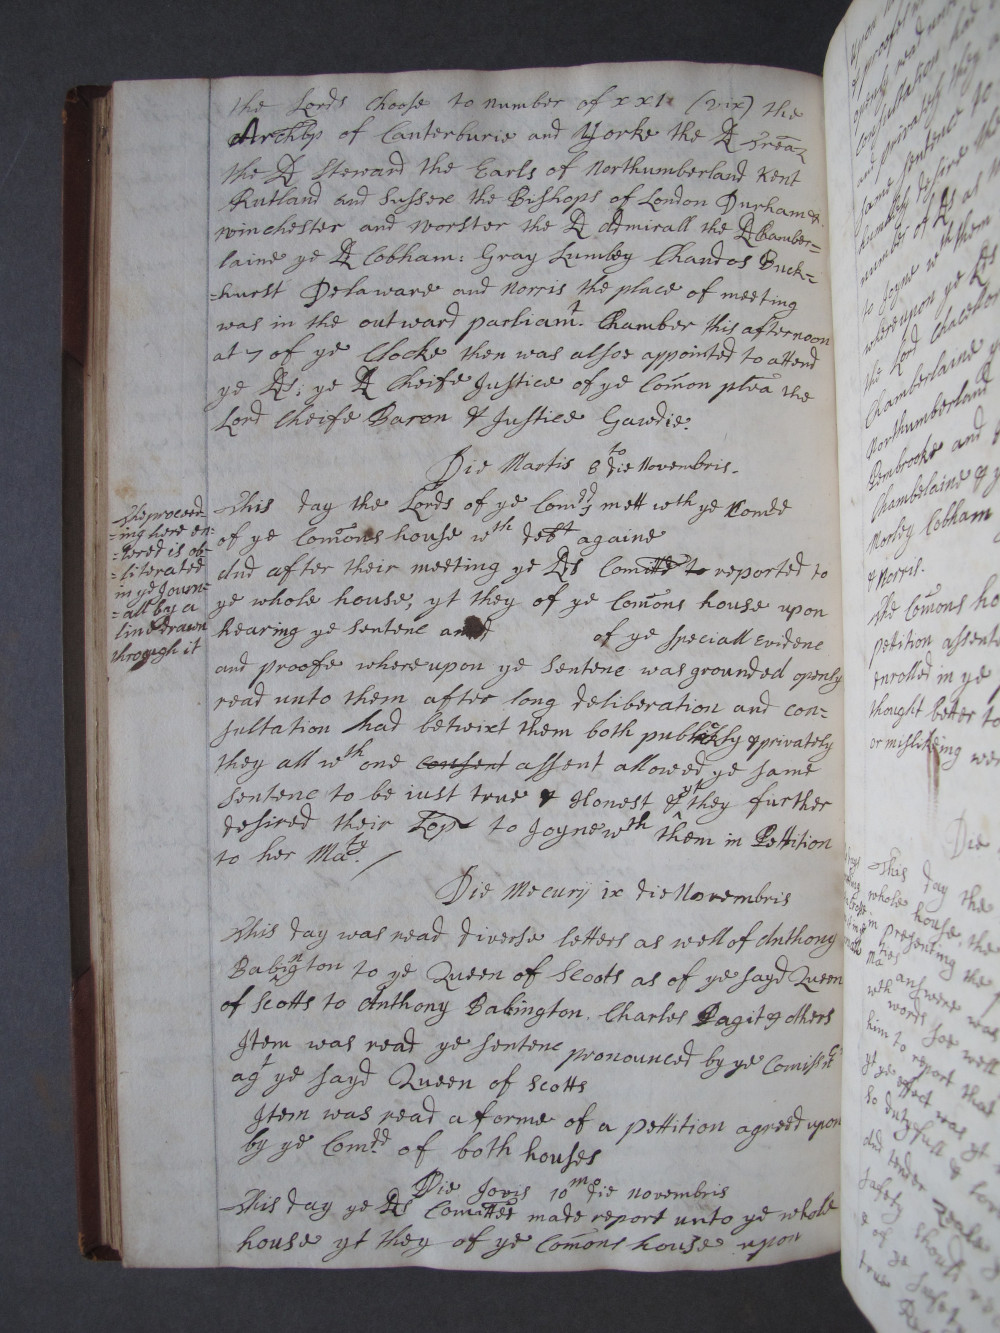 the Lords Choose to number of xxi. (viz) the
Archbp of Canterburie and Yorke the Ld Trea:
the Ld Steward the Earls of Northumberland Kent
Rutland and Sussex the Bishops of London Durham &
winchester and worster the Ld Admirall the Ld Chamber=
laine ye Ld Cobham: Gray Lumley Chandos Buck=
=hurst Delaware and Norris the place of meeting
was in the outward parliamt. Chamber this afternoon
at 7 of ye Clocke then was alsoe appointed to attend
ye Lds: ye Ld Cheife Justice of ye Com̄on plea the
Lord Cheife Baron & Justice Gawdie.
Die Martis 8to die Novembris.
The proceed=
=ing here en=
=tered is ob=
=literated
in ye Journ=
=all by a
line drawn
through it
This day the Lords of ye Com mett wth ye Comtte
of ye Com̄ons house wth debt againe
And after their meeting ye Lds Comitte to reported to
ye whole house, yt they of ye Com̄ons house upon
hearing ye Sentenc and of ye speciall Evidenc
and proofe whereupon ye Sentenc was grounded openly
read unto them after long deliberation and con=
sultation had betwixt them both publikly & privately
they all wth one consent assent allowed ye same
Sentenc to be iust true & Honest & yt they further
desired their Lops to Joyne wth them in Pettition
to her Maty.
Die Mecurij ix die Novembris
This day was read diverse letters as well of Anthony
Babington to ye Queen of Scoots as of ye sayd Queen
of Scotts to Anthony Babington. Charles Pagit & others
Item was read ye sentenc pronounced by ye Comissrs
agt ye sayd Queen of Scotts
Item was read a forme of a pettition agreed upon
by ye Com of both houses
Die Jovis 10mo die Novembris
This day ye Lds Comittes made report unto ye whole
house yt they of ye Com̄ons house upon
openly read unto
Consultation had
and privately they
same sentence to
humbly desire
number of Lds as
to Joyne wth them
whereupon ye Lds
the Lord Chacellor
Chamberlaine
Northumberland
Pembrooke and
Chambelaine & ye
Morley Cobham
& Norris.
The Com̄ons ho
petition assent
enrolled in ye
thought better to
or misliking wer
Die
This day the
whole house, the
in presenting the
Maties answere was
wth words soe well
him to report that
yt ye effect was yt
so dutyfull & lov
and tender zeale
safety should
of ye safety